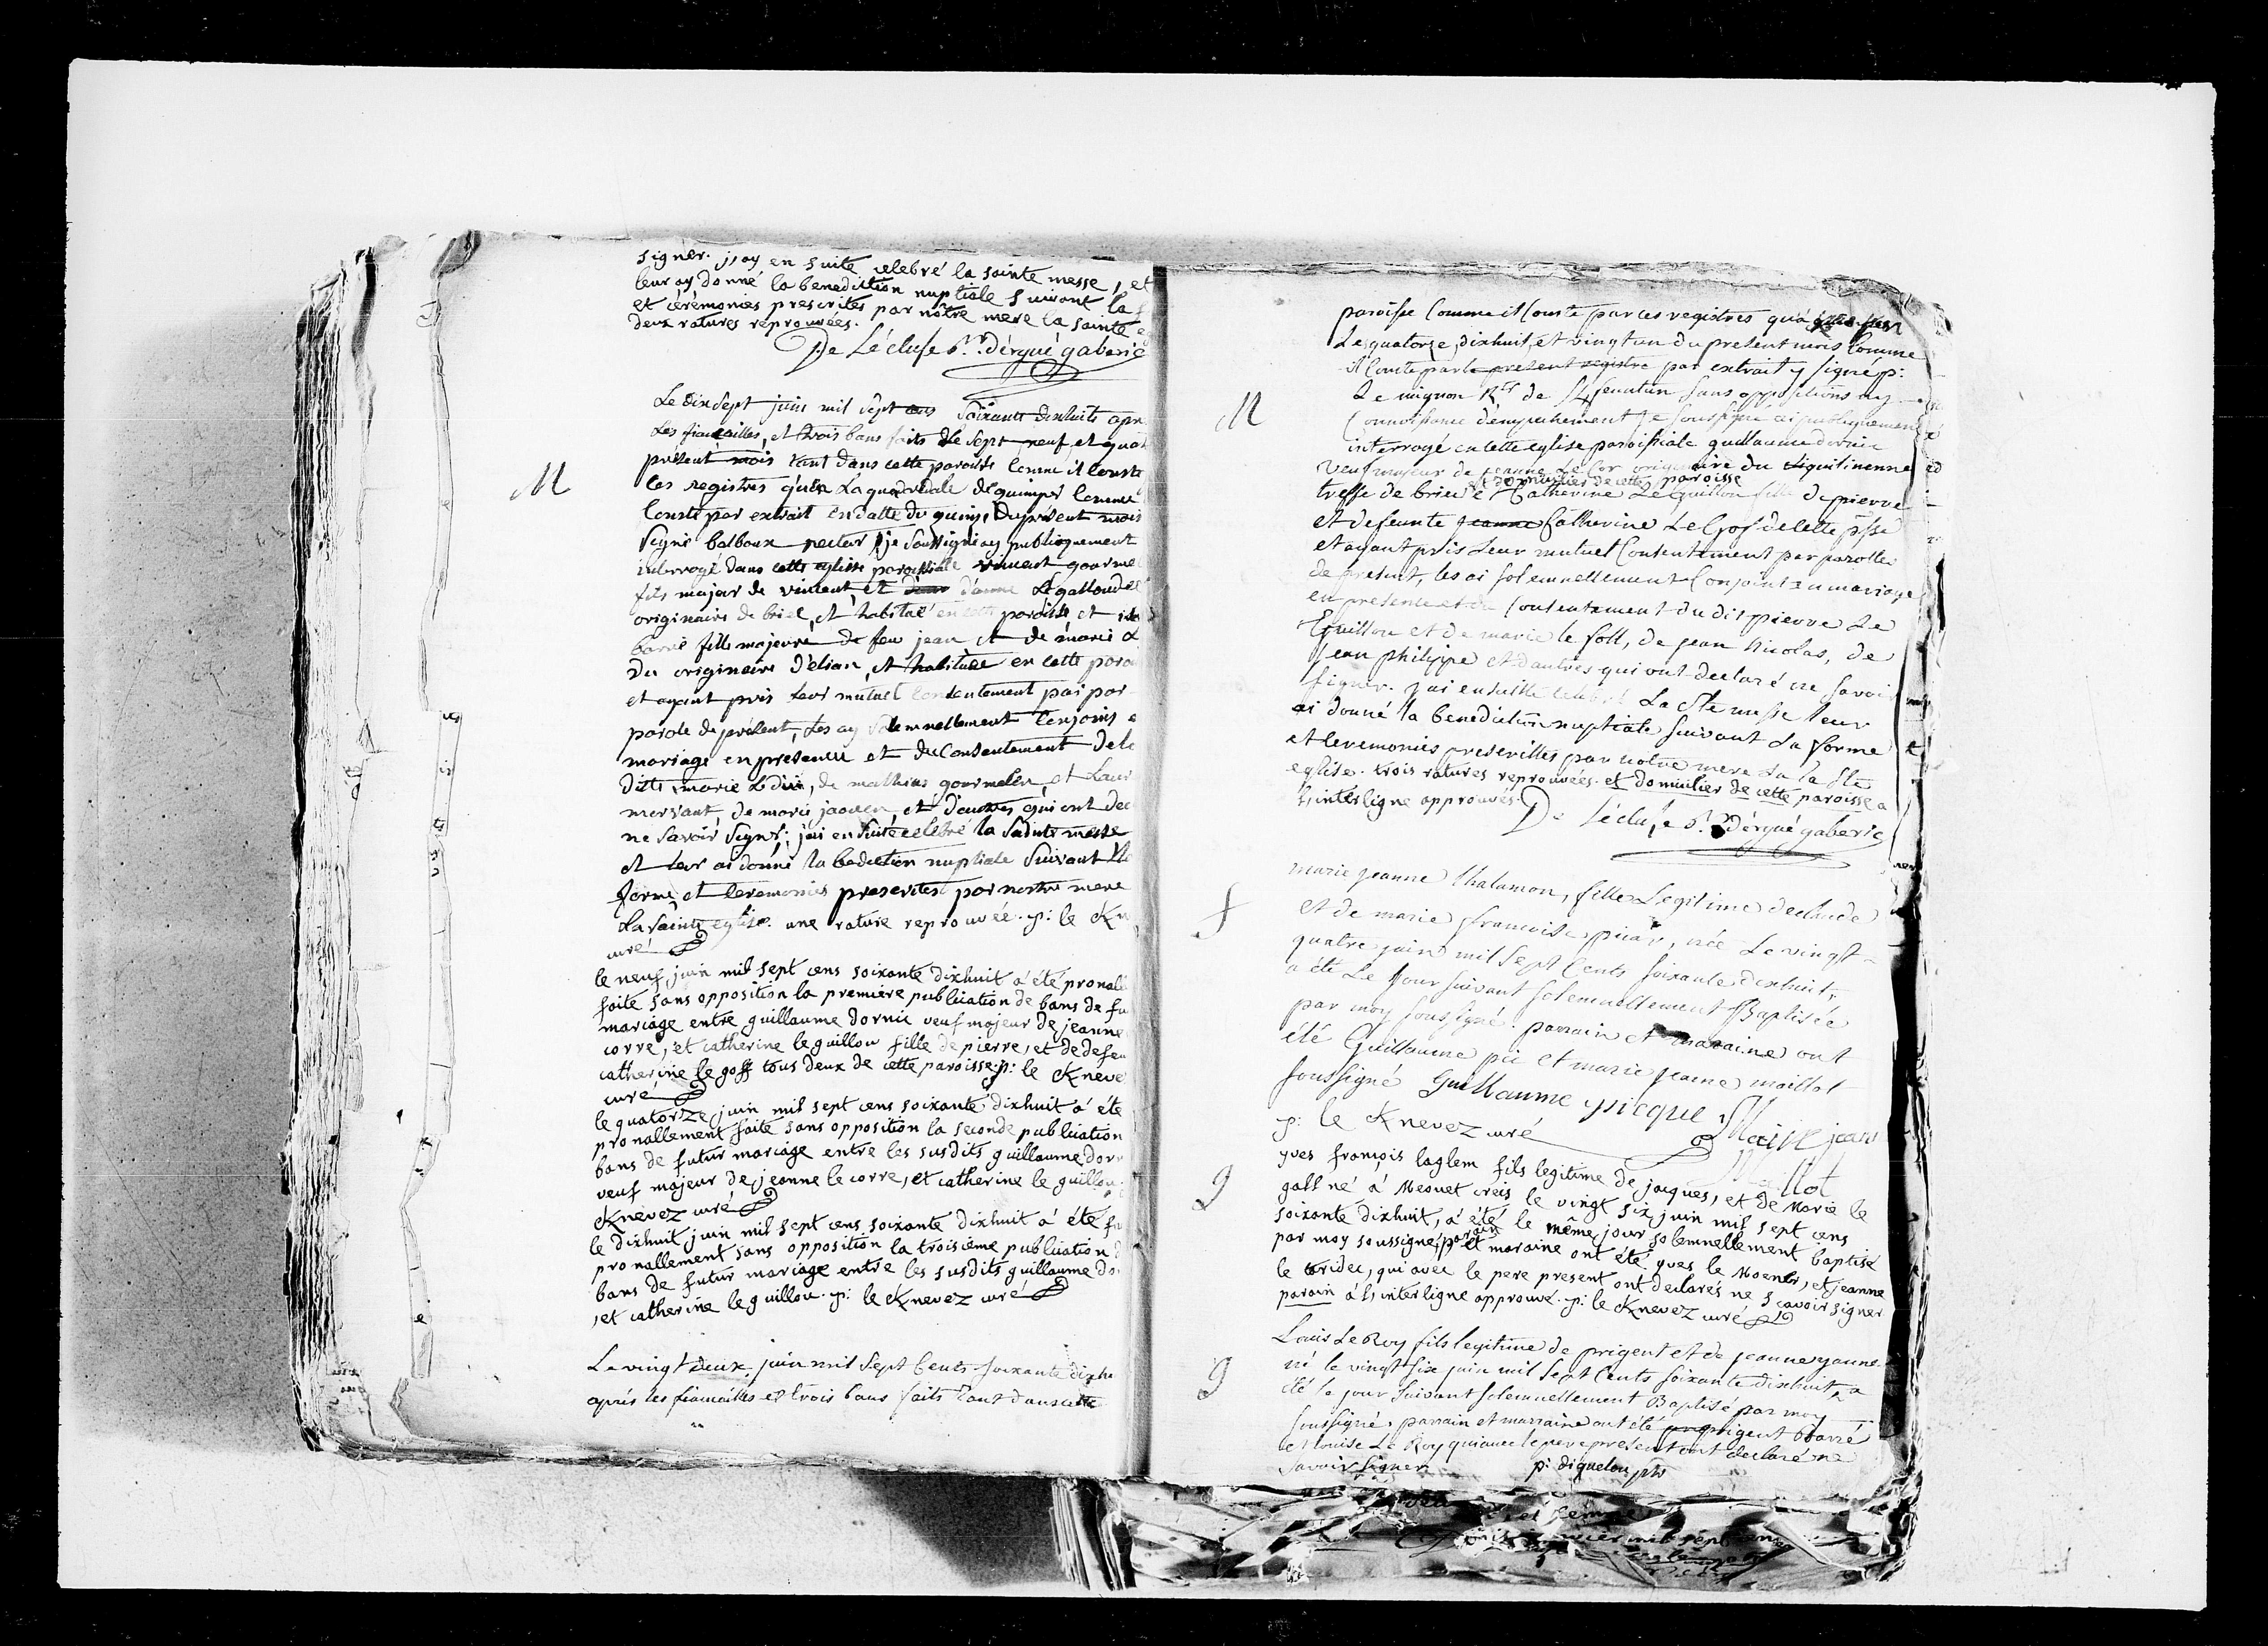 signer. j'ay en suite celebré la sainte messe, et
leur ay donné la benediction nuptiale suivant la
et cérémonies prescrites par nôtre mere la sainte
deux ratures reprouvées.
De Lécluse b.r. dérgué gaberic
M
Le dix sept juin mil sept soixante dixhuite apr
Les fiancailles, et trois bans faits de sept neuf et quat
présent mois tant dans cette paroisse comme il conste
les registres qu'en La quadredale de quimper comme
conste par extrait en datte du quinze du présent mois
signé balboux rectur, je soussigné ay publiquement
interrogé dans cette eglise paroissiale vincent gourme
fils majeur de vincent, et d'anne Le gallou de
originaire de briec, et habitué en cette paroisse et
barré fille majeure de feu jean et de marie
Du originaire d'elian, et habituée en cette paroi
et ayant pris leur mutuel consentement pas par
parole de présent, Les ay solemnellement conjoins e
mariage en présence et du consentement de la
ditte marie Le Du, de mathias gourmelen, et Laur
mersant, de marie jaouen, et d'autres qui ont dec
ne savoir signer; j'ai en suite celebré la sainte messe
et leur ai donné la bediction nuptiale suivant la
forme, et ceremonies prescrites par nostre mere
La sainte eglise. une rature reprouvée. p: le Kn
curé
le neuf juin mil sept cens soixante dixhuit a été pronal
faite sans opposition la premiére publication de bans de fu
mariage entre guillaume dornic veuf majeur de jeanne
corre, et catherine le guillou fille de pierre, et de defeu
catherine le goff tous deux de cette paroisse. p: le Kneve
curé
le quatorze juin mil sept cens soixante dixhuit a été
pronallement faite sans opposition la seconde publication
bans de futur mariage entre les susdits guillaume dor
veuf majeur de jeanne le corre, et catherine le guillou
Knevez curé
le dixhuit juin mil sept cens soixante dixhuit a été fa
pronallement sans opposition la troisiéme publication
bans de futur mariage entre les susdits guillaume do
, et catherine le guillou. p: le Knevez curé
Le vingt deux juin mil sept Cents soixante dixhu
aprés les fiancailles et trois bans faits tant dans cette
paroisse Comme il Conste par les registres qu'a
Les quatorze, dixhuit, et vingt un du present mois Comme
il Conste par le present registre par extrait y signé p:
M
Le mignon R.tr de sans oppositions ny
Connoissance d'empechement je soussigné ai publiquement
interrogé en cette eglise paroissiale guillaume dornic
veuf majeur de jeanne Le Cor originaire du
et domicilier de cette paroisse
tresse de briec Catherine Le guillou fille de pierre
et defeunte jeanne Catherine Le Gof de cette psse
et ayant pris Leur mutuel Consentement par parolles
de present, les ai solemnellement Conjoint en mariage
en presence et du Consentement du dit pierre Le
Guillou et de marie le foll, de jean Nicolas, de
jean philippe et d'autres qui ont declaré ne savoir
signer. j'ai ensuitte celebré La Ste messe leur
ai donné la benediction nuptiale suivant La forme
et ceremonies prescrittes par notre mere La la Ste
eglise. trois ratures reprouvées. et domicilier de cette paroisse a
l'interligne approuvés.
De Lécluse b.r. dérgué gaberic
f
marie jeanne thalamon, fille Legitime de claude
et de marie francoise picar, née Le vingt
quatre juin mil sept Cents soixante dixhuit,
a été Le jour suivant solemnellement Baptisée
par moy soussigné. parrain et maraine ont
été Guillaume pic et marie jeanne maillot
soussigné Guillaume picque Marie jean
p: le Knevez curé Maillot
g
yves françois laglem fils legitime de jacques, et de Marie le
gall né á Mesnet creis le vingt six juin mil sept cens
soixante dixhuit, a été le même jour solemnellement baptisé
par moy soussigné, parain et maraine ont été yves le Moenér, et jeanne
le tridec, qui avec le pere present ont declarés ne sçavoir signer
parain á l'interligne approuvé. p: le Knevez curé
g
Louis Le Roy fils legitime de prigent et de jeanne jaune
né le vingt six juin mil sept Cents soixante dixhuit, a
été le jour suivant solemnellement Baptisé par moy
soussigné, parrain et marraine ont été prigent barré
et louise Le Roy qui avec le pere present ont declaré ne
savoir signer p: diquelou ptre